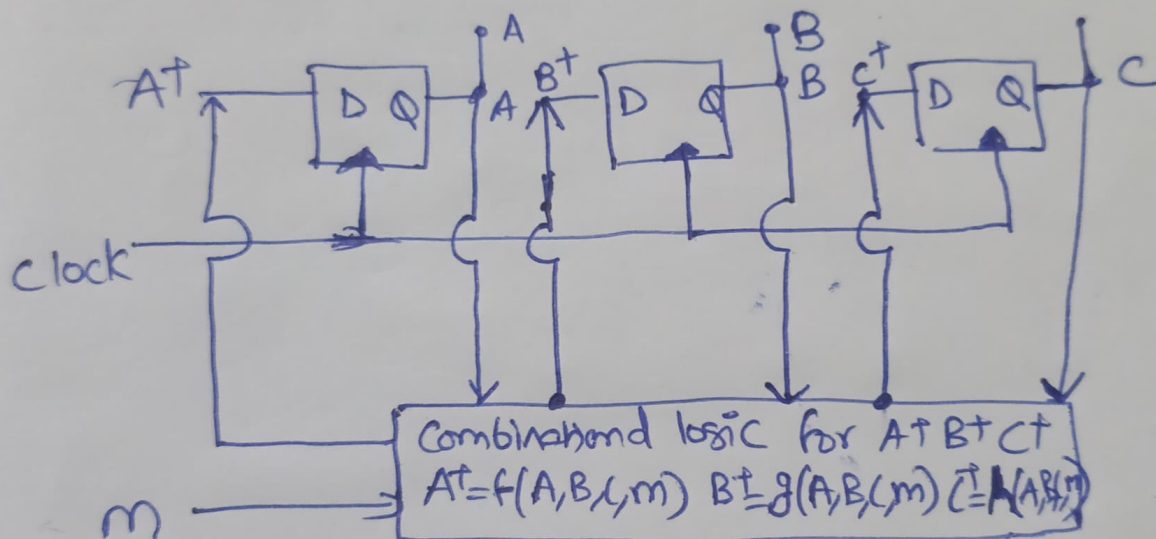 A
A† D Q A B† D Q B B C† D Q C
Clock
combinational logic for A† B† C†
A†=f(A,B,C,m) B†=g(A,B,C,m) C†=h(A,B,C,m)
m